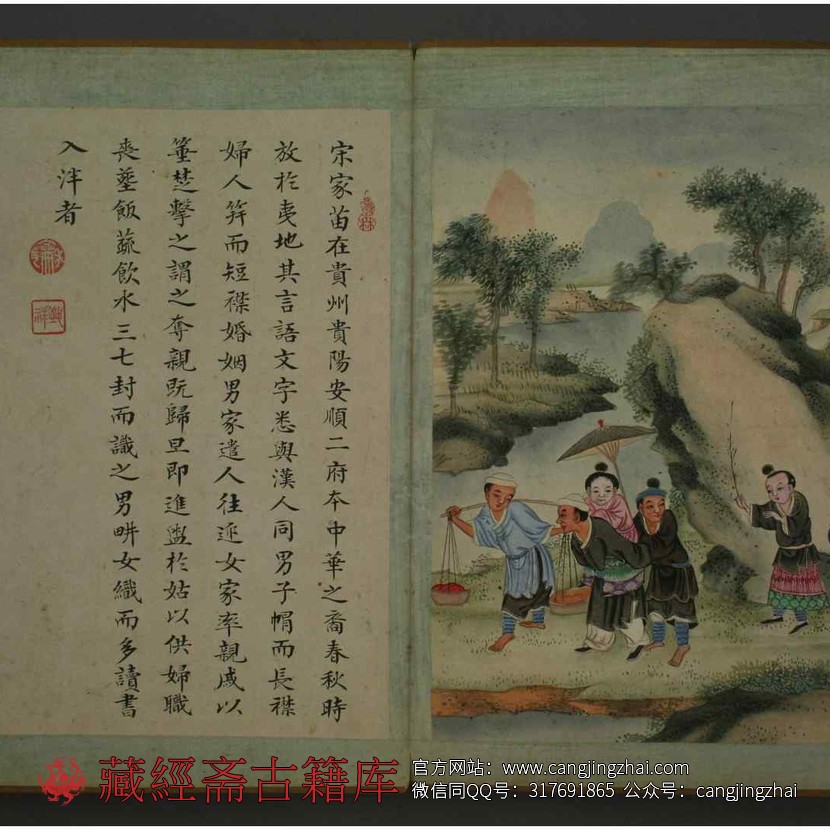 宋家苗在貴州貴陽安順二府本中華之裔春秋時
放於夷地其言語文字悉與漢人同男子帽而長襟
婦人笄而短襟婚姻男家遣人往迎女家率親戚以
箠楚擊之謂之奪親既歸旦即進盥於姑以供婦職
喪塟飯蔬飲水三七封而識之男畊女織而多讀書
入泮者
藏經斋古籍库
官方网站：www.cangjingzhai.com
微信同QQ号：317691865 公众号：cangjingzhai